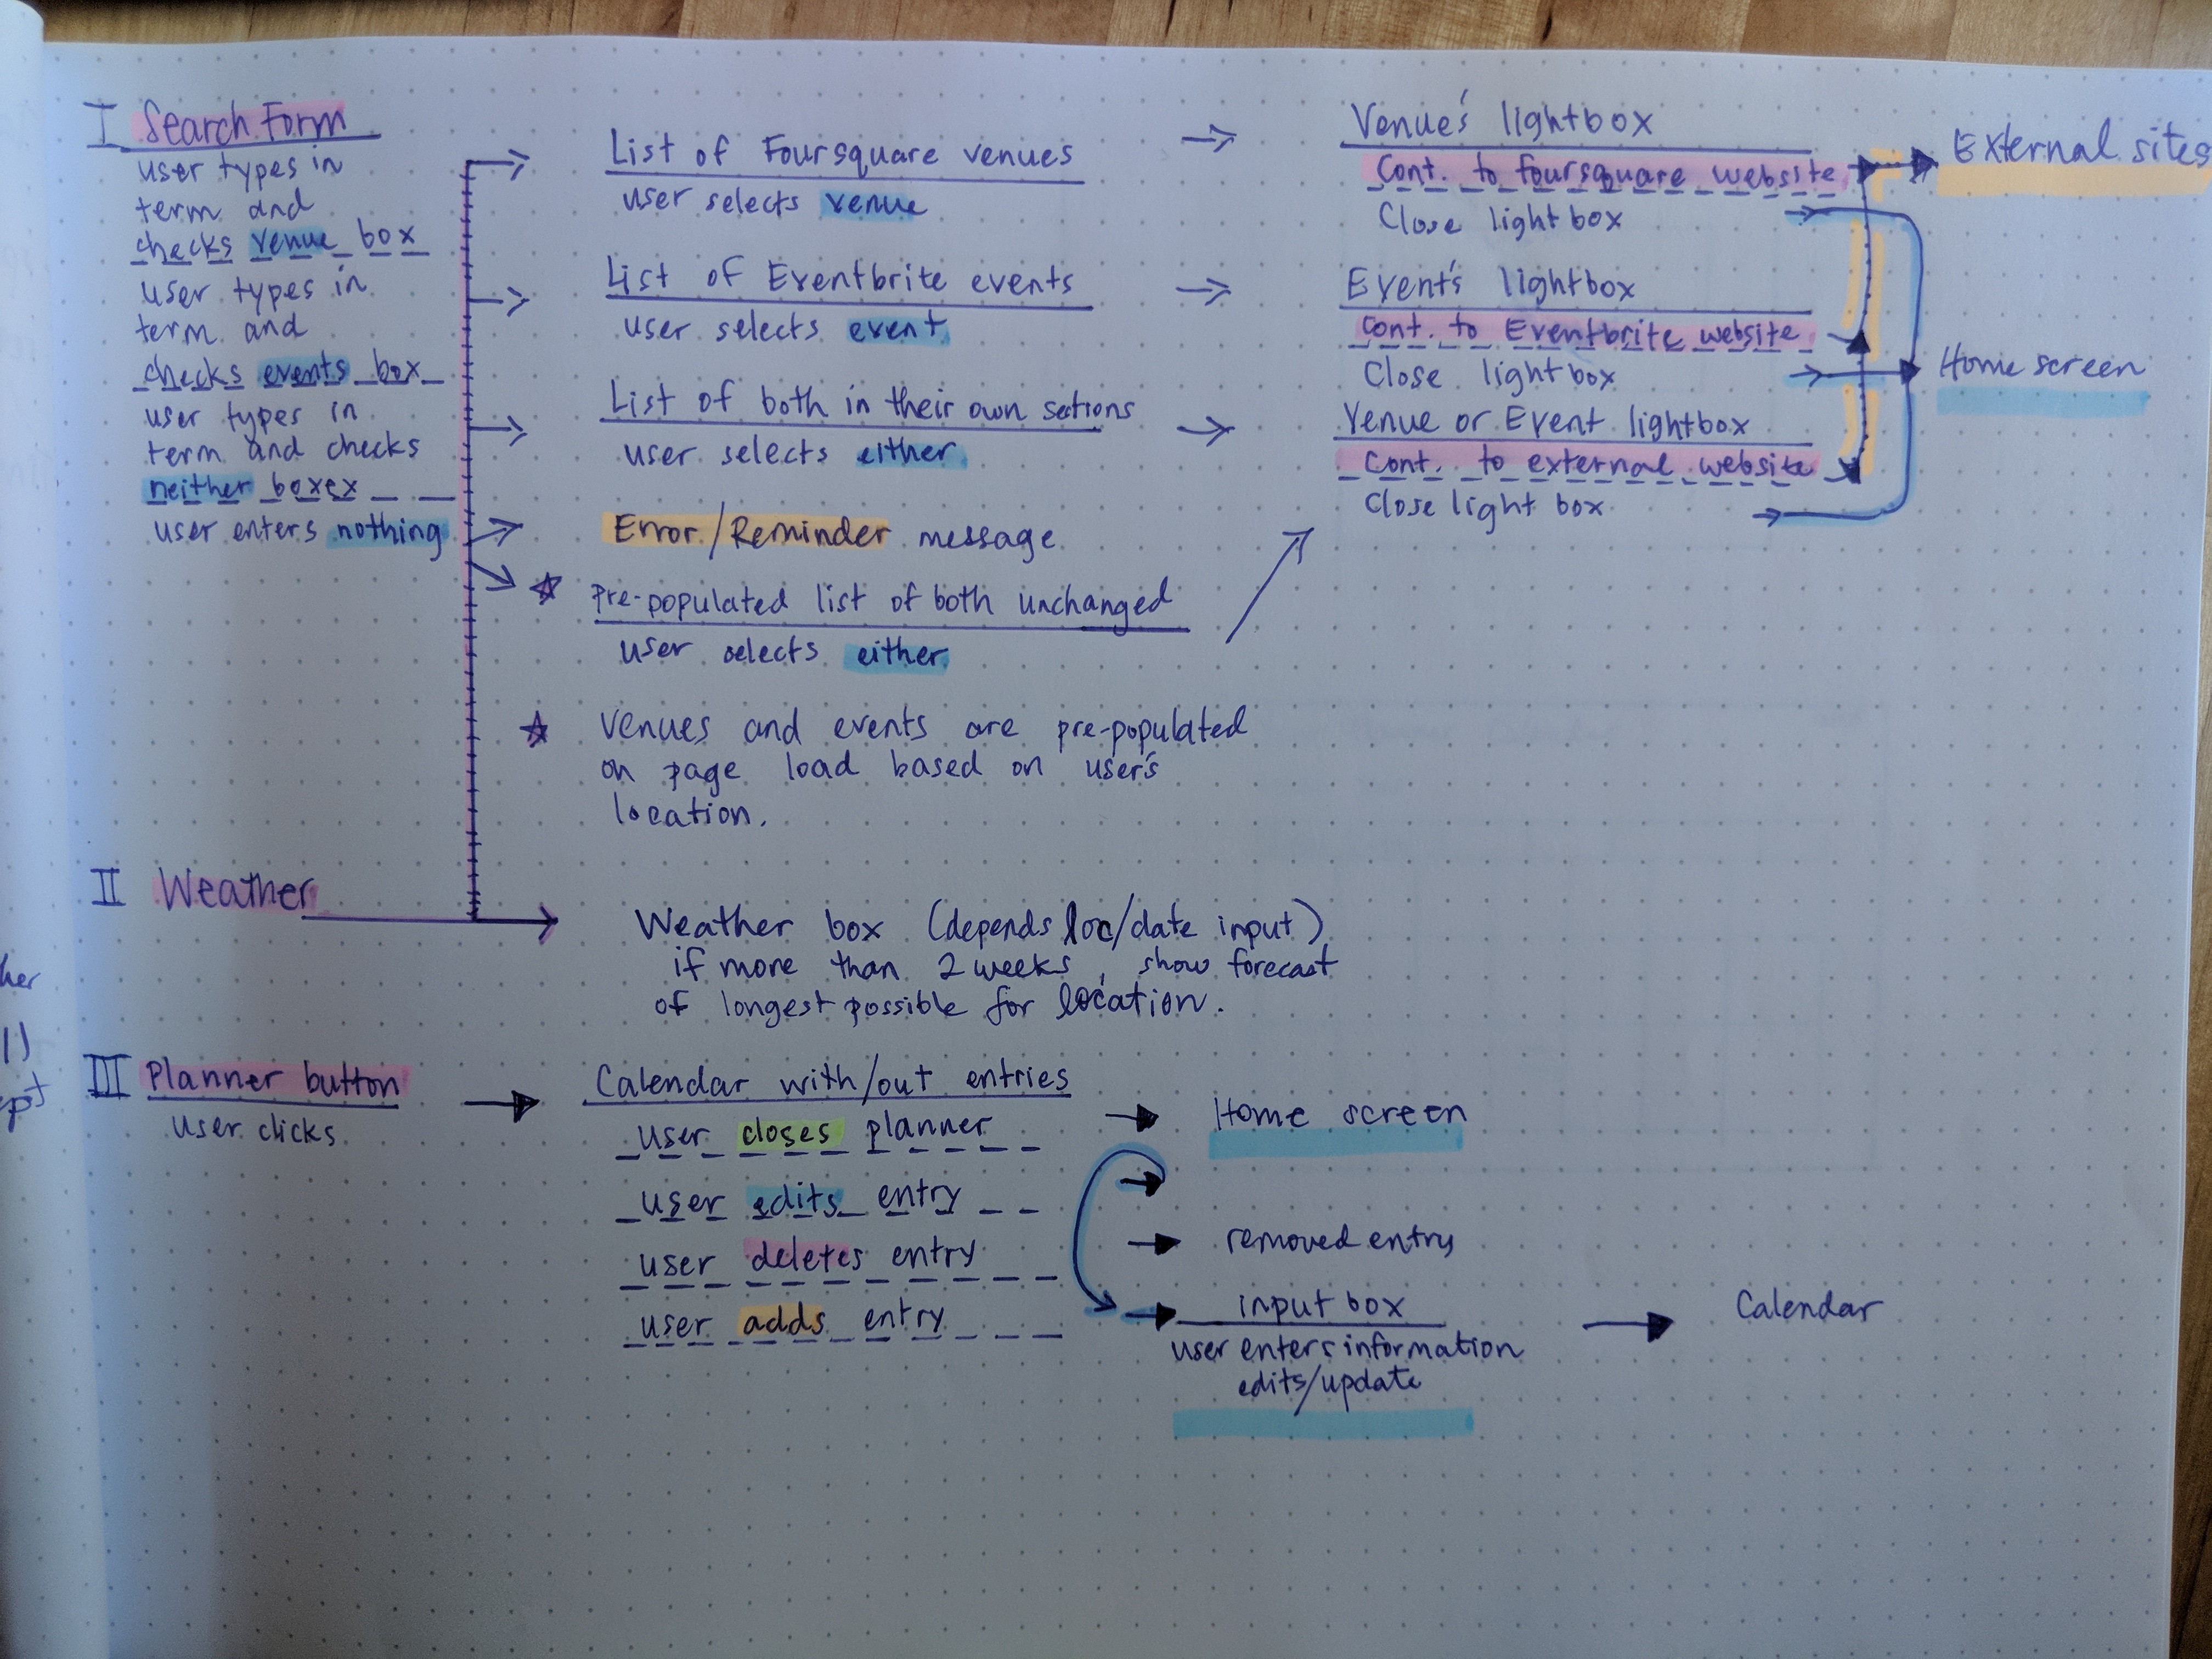 I Search Form
user types in
term and
checks venue box
user types in
term and
checks events box
user types in
term and checks
neither boxex
user enters nothing
List of Foursquare venues
user selects venue
List of Eventbrite events
user selects event
List of both in their own sections
user selects either
Error/Reminder message
☆ Pre-populated list of both unchanged
user selects either
☆ Venues and events are pre-populated
on page load based on user's
location.
Venue's lightbox
Cont. to foursquare website
Close lightbox
Event's lightbox
Cont. to Eventbrite website
Close lightbox
Venue or Event lightbox
Cont. to external website
Close light box
External sites
Home screen
II Weather
Weather box (depends loc/date input)
if more than 2 weeks, show forecast
of longest possible for location.
III Planner button
user clicks
Calendar with/out entries
user closes planner
user edits entry
user deletes entry
user adds entry
Home screen
removed entry
input box
user enters information
edits/update
Calendar